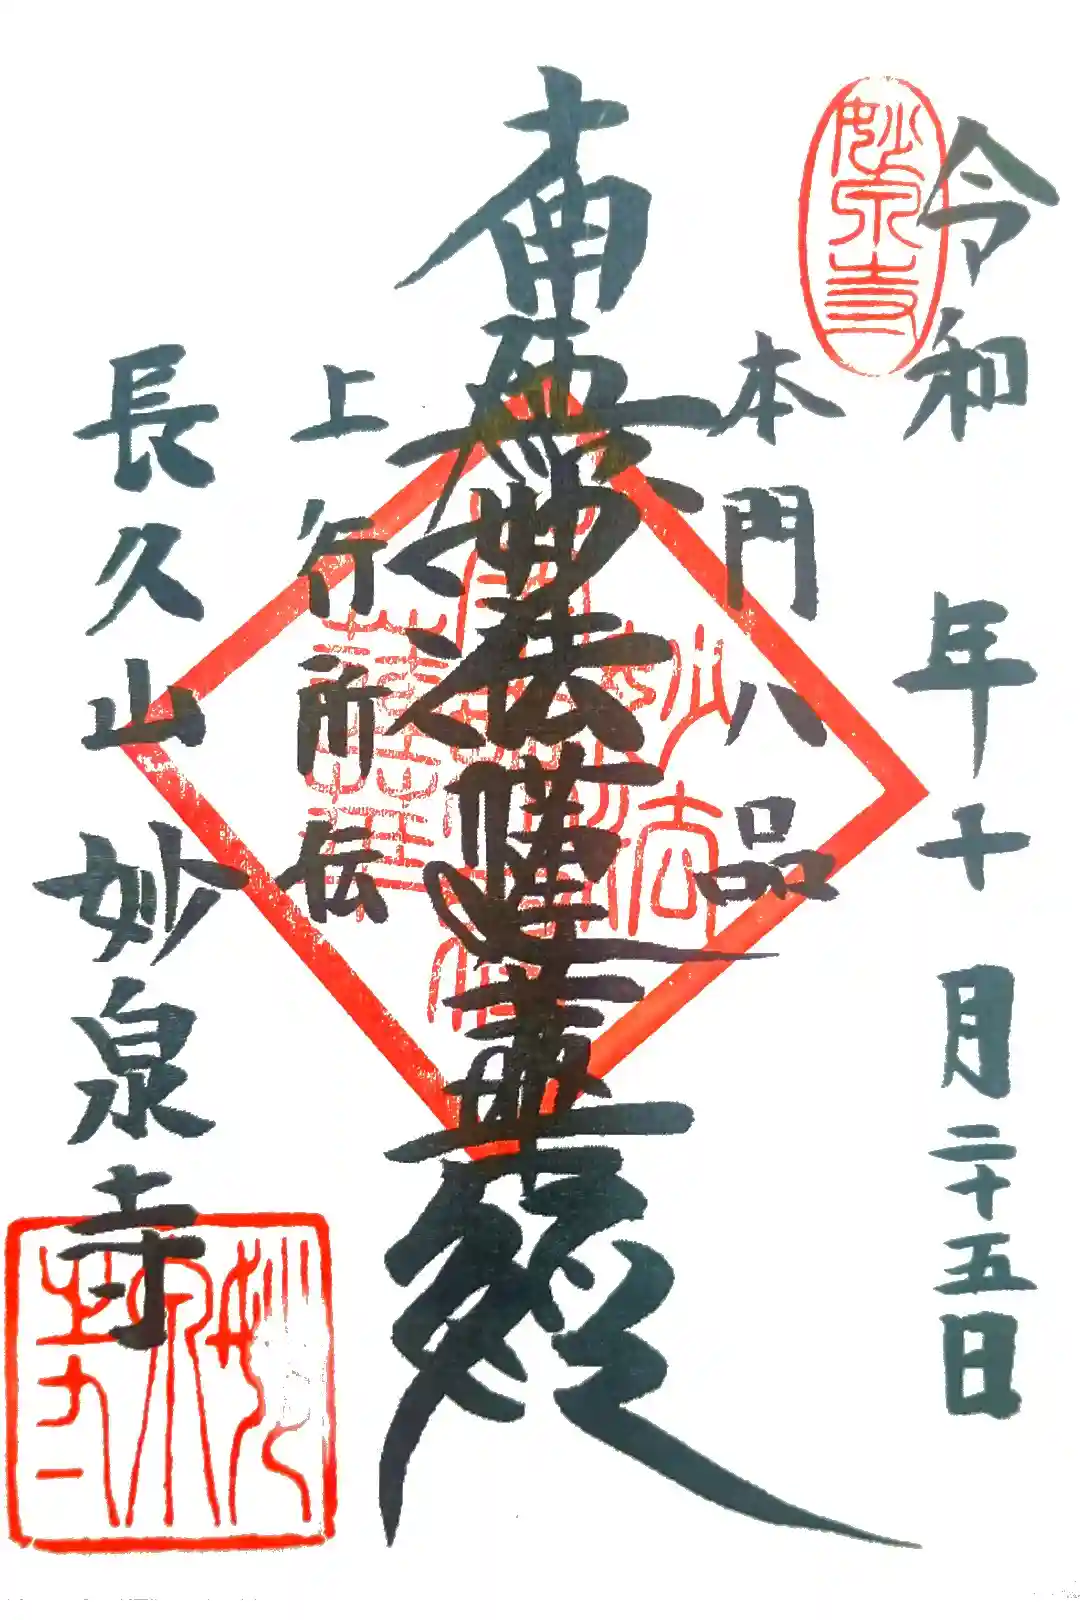 令和 年十月二十五日
妙泉寺
本門八品
南無妙法蓮華経
上行所伝
長久山 妙泉寺
妙法蓮華
妙泉寺